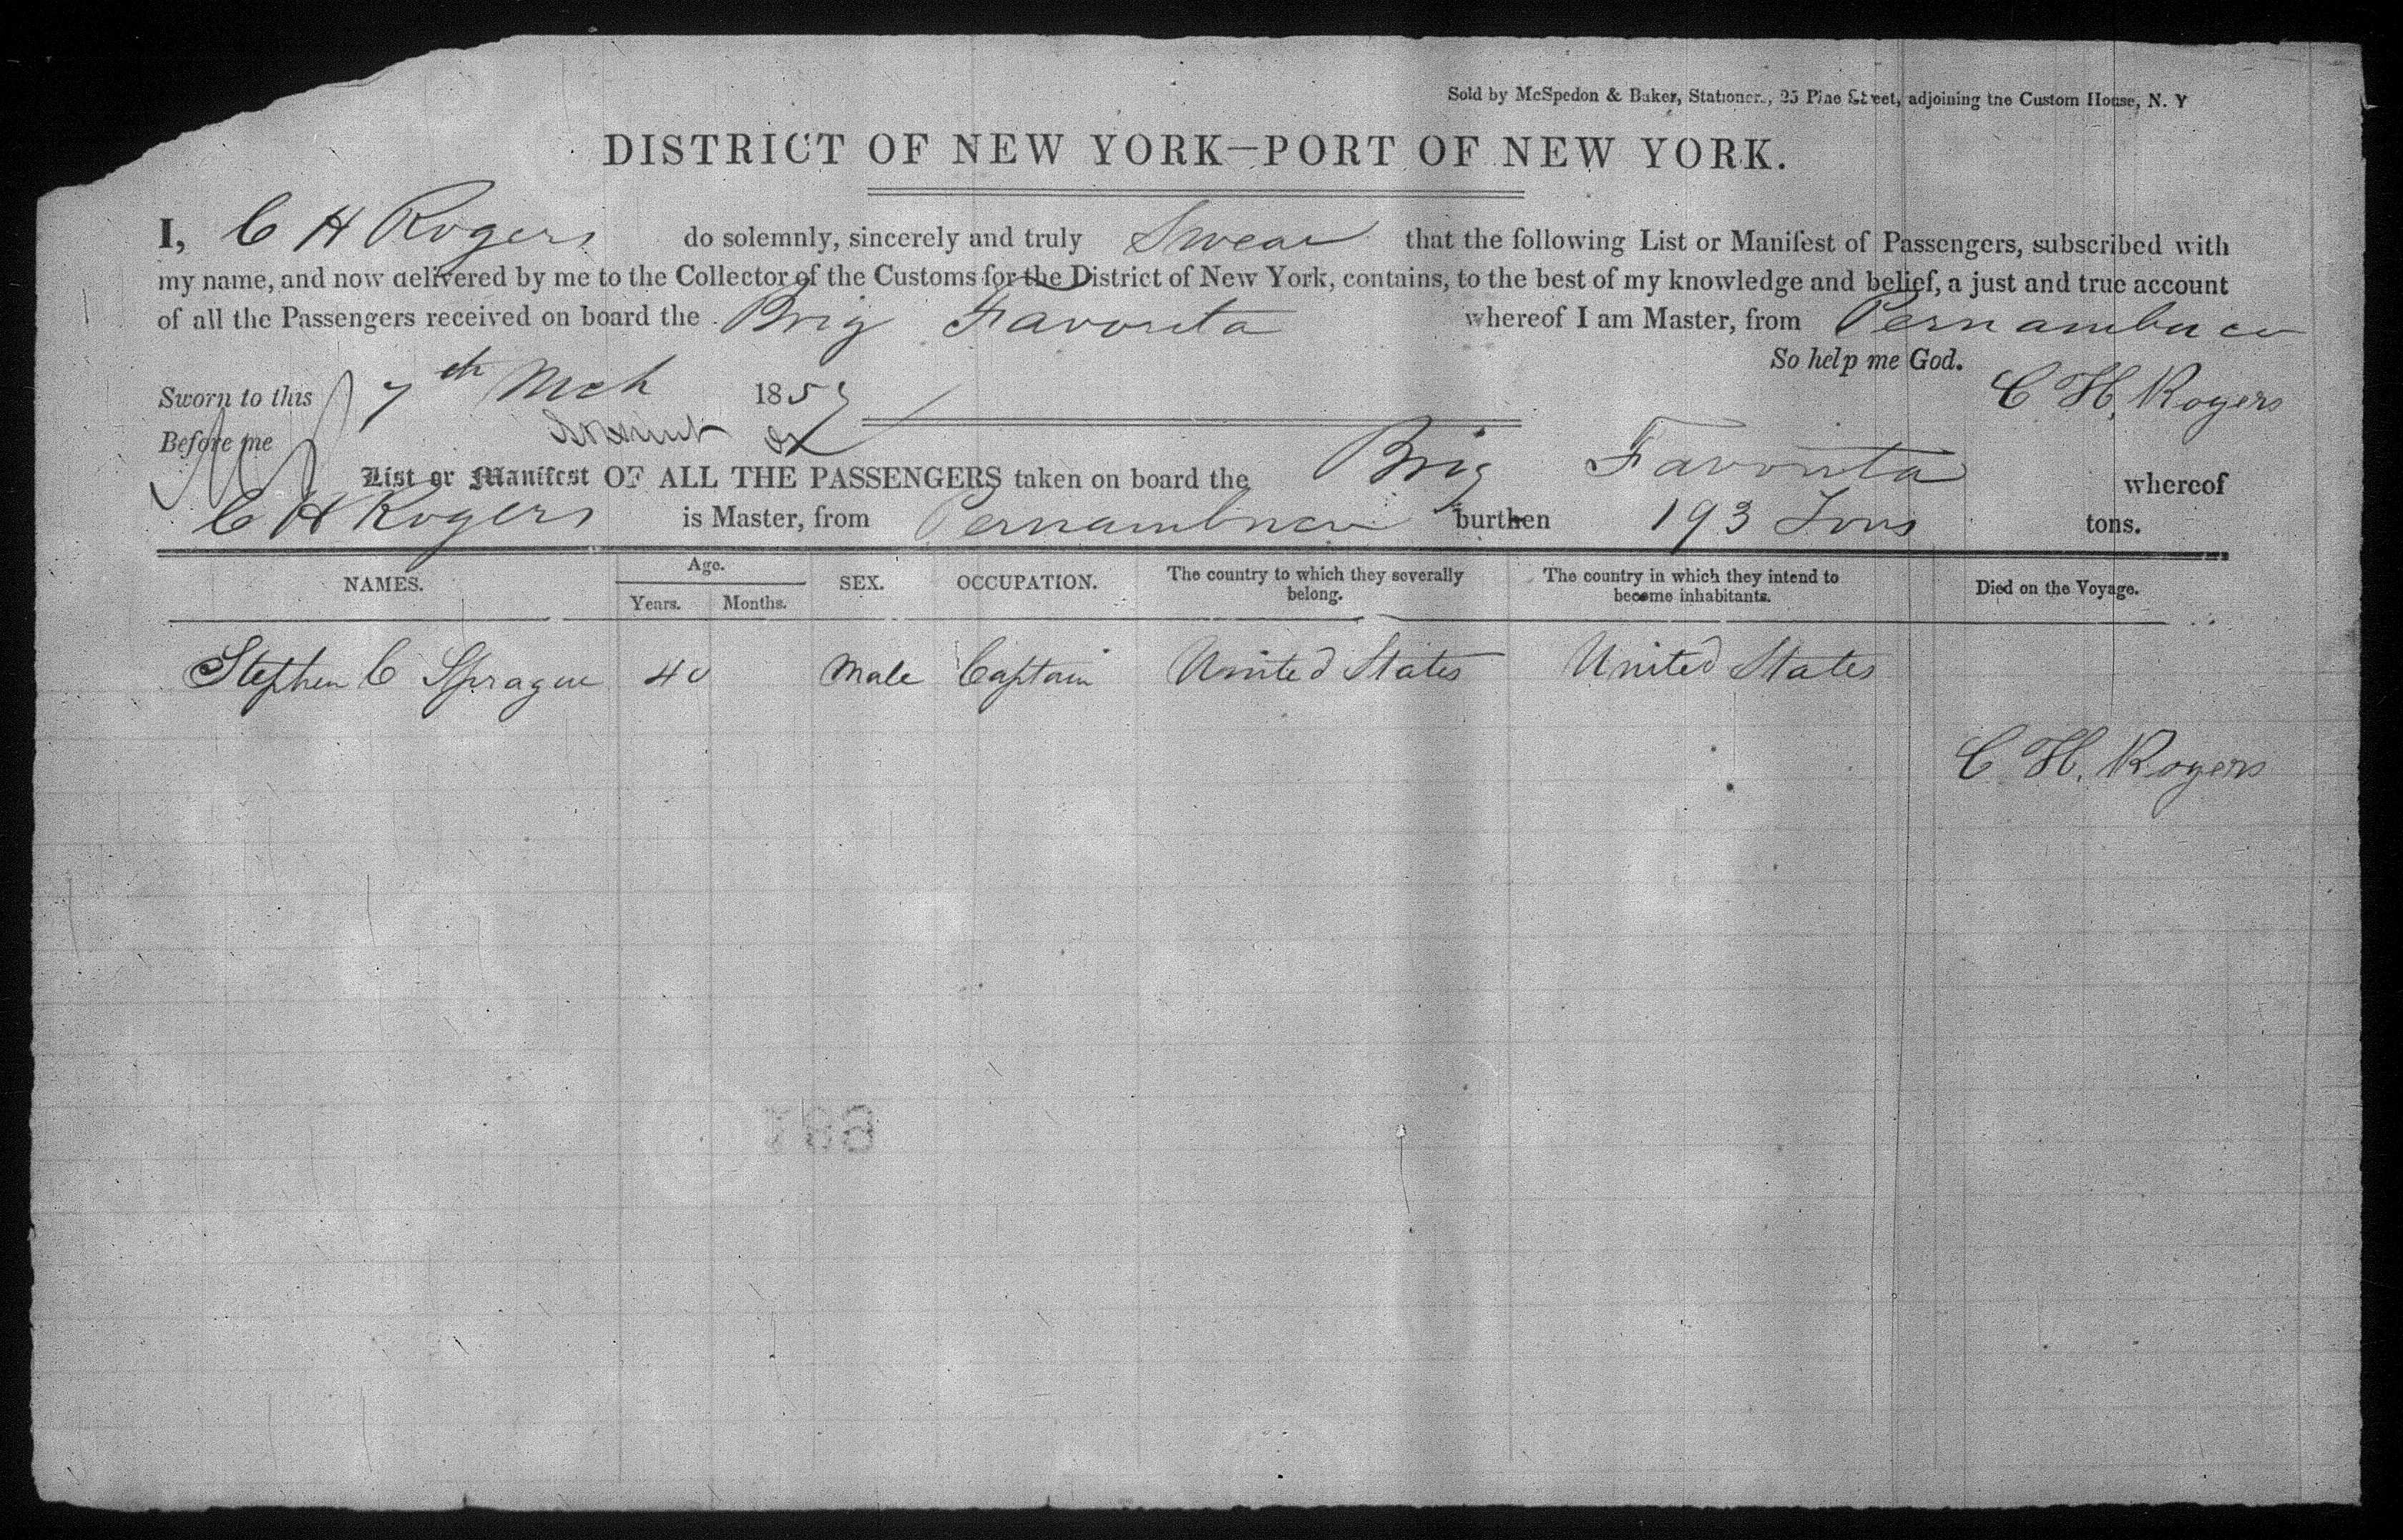 Sold by McSpedon & Baker, Stationers, 25 Pine Street, adjoining the Custom House, N. Y
DISTRICT OF NEW YORK—PORT OF NEW YORK.
I, C H Rogers do solemnly, sincerely and truly Swear that the following List or Manifest of Passengers, subscribed with
my name, and now delivered by me to the Collector of the Customs for the District of New York, contains, to the best of my knowledge and belief, a just and true account
of all the Passengers received on board the Brig Favorita whereof I am Master, from Pernambuco
So help me God.
Sworn to this 7th Mch 185 C H. Rogers
Before me
List or Manifest OF ALL THE PASSENGERS taken on board the Brig Favorita whereof
C H Rogers is Master, from Pernambuco burthen 193 Tons tons.
NAMES. Age. Years. Months. SEX. OCCUPATION. The country to which they severally belong. The country in which they intend to become inhabitants. Died on the Voyage.
Stephen C Sprague 40 Male Captain United States United States
C H. Rogers